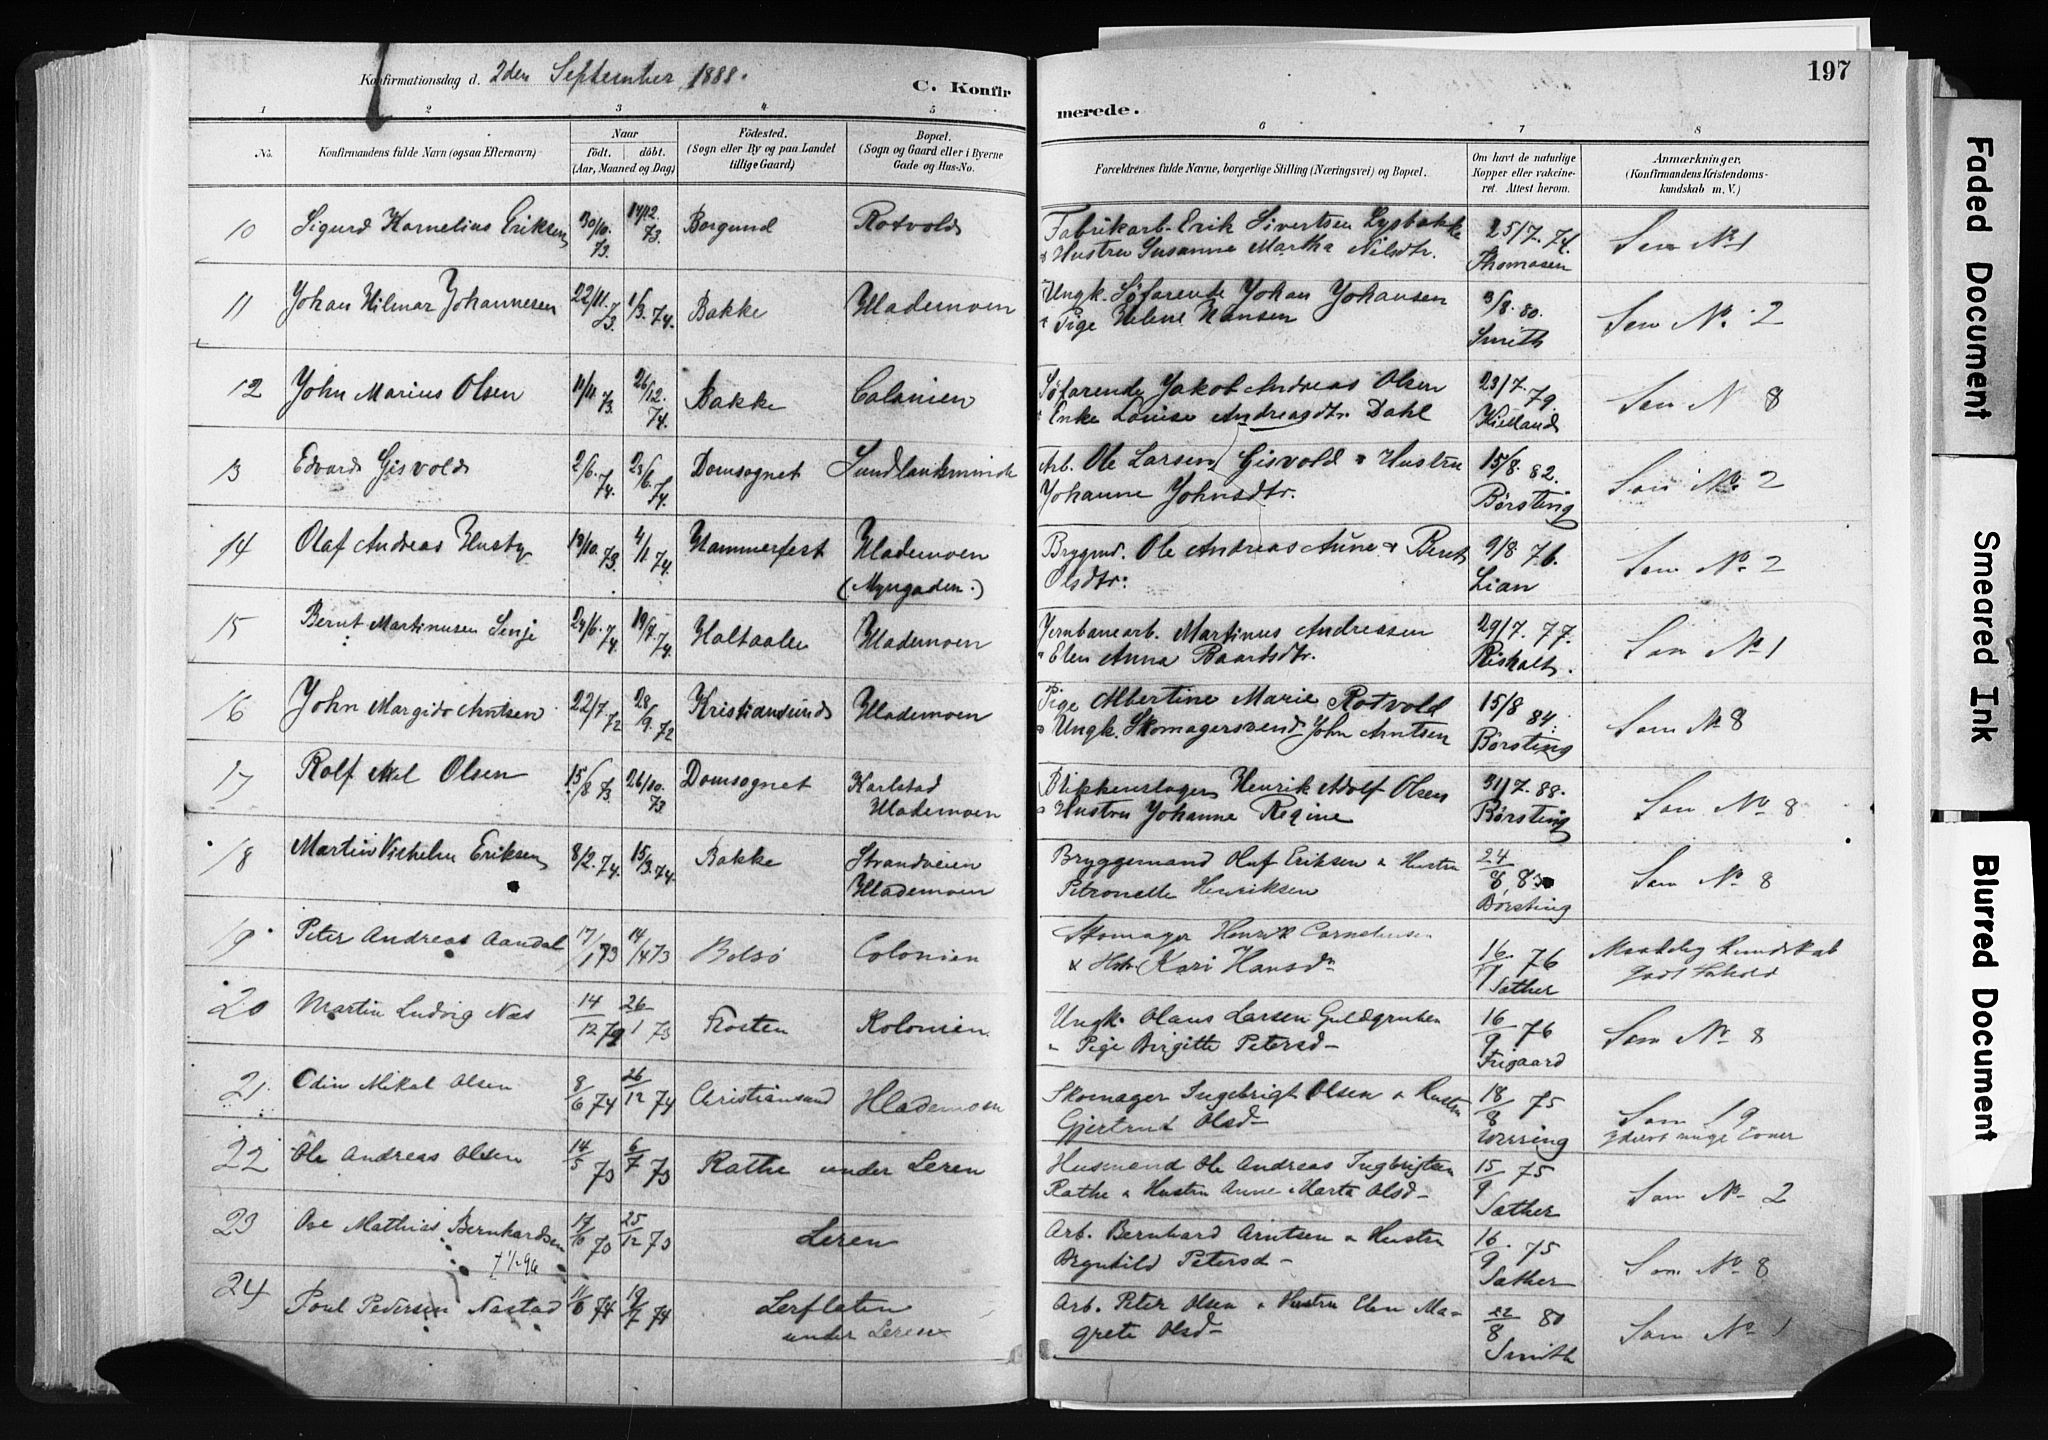 Konfirmationsdag d. 2den September 1888.
C. Konfir
merede.
197
1 2 3 4 5 6 7 8
No.
Konfirmandens fulde Navn (ogsaa Efternavn)
Naar
født, døbt.
(Aar, Maaned og Dag)
Fødested.
(Sogn eller By og paa Landet
tillige Gaard)
Bopæl.
(Sogn og Gaard eller i Byerne
Gade og Hus-No.
Forældrenes fulde Navne, borgerlige Stilling (Næringsvei) og Bopæl.
Om havt de naturlige
Kopper eller vakcine-
ret. Attest herom.
Anmærkninger,
(Konfirmandens Kristendoms-
kundskab m. V.)
10 Sigurd Kornelius Eriksen 30/10. 73. 14/12. 73. Borgund Rotvold Fabrikarb. Erik Sivertsen Lysbakke 25/7. 74.
Hustru Susanne Martha Nilsdtr. Thomasen Som No 1
11 Johan Hilmar Johannesen 22/11. 73. 1/3. 74. Bakke Hlademoen Ungk. Søfarende Johan Johansen 3/8. 80.
Pige Helene Hansen Smith Som No. 2
12 John Marius Olsen 11/11 73. 26/12. 74. Bakke Colonien Søfarende Jakob Andreas Olsen 23/7. 79.
Enke Louise Andreasdtr. Dahl Kielland Som N 8
13 Edvard Gisvold 2/6. 74. 23/6. 74. Domsognet Sundlandsminde Arb. Ole Larsen Gisvold & Hustru 15/8. 82.
Johanne Johnsdtr. Børsting Som No. 2
14 Olaf Andreas Husby 19/10. 73. 4/1 74. Hammerfest Hlademoen Bryggmd. Ole Andreas Aune & Beret 9/8 76.
(Myrgaden.) Olsdtr. Lian Som No. 2
15 Bernt Martinusen Senje 24/6. 74. 19/7. 74. Holtaalen Hlademoen Jernbanearb. Martinus Andreasen 29/7. 77.
Elen Anna Baardsdtr. Riskalt. Som No 1
16 John Margido Arntsen 22/7 72 28/9. 72 Kristiansund Hlademoen Pige Albertine Marie Rotvold 15/8 84.
Ungk. Skomagersvend John Arntsen Børsting Som No 8
17 Rolf Axel Olsen 15/8 73. 26/10. 73 Domsognet Karlstad Blikkenslager Henrik Adolf Olsen 31/7. 88.
Hlademoen Hustru Johanne Regine Børsting Som No 8
18 Martin Vilhelm Eriksen 8/2. 74. 15/3. 74. Bakke Strandveien Bryggemand Oluf Eriksen & Hustru 24/8
Hlademoen Petronelle Henriksen Børsting Som No 8
19 Peter Andreas Aandal 17/1 73 14/4 73 Bolsø Colonien Skomager Henrik Corneliussen
& Hstr Kari Hansdr 16/9 76 Sæther Maadelig Kundskab
godt Forhold
20 Martin Ludvig Næs 14/12 72 26/1 73 Frosten Kolonien Ungk. Olaus Larsen Guldgruben 16/9 76
Pige Birgitte Petersd- Frigaard Som No 8
21 Odin Mikal Olsen 8/6 74 26/12 74 Christiansund Hlademoen Skomager Ingebrigt Olsen & Hustru 18/8 75
Gjertrud Olsd- Werring Som 19
22 Ole Andreas Olsen 14/5 73 6/7 73 Rathe under Leren Husmand Ole Andreas Ingbrigtsen 15/9 75
Rathe & Hustru Anne Marta Olsd- Sæther Som No 2
23 Ove Mathias Bernhardsen 17/10 73 25/12 73 Leren Arb. Bernhard Arntsen & Hustru 16/9 75
Brynhild Petersd- Sæther Som No 8
24 Poul Pedersen Nastad 11/6 74 19/7 74 Lerflaten Arb. Peter Olsen & Hustru Elen Ma-
under Leren grete Olsd- 22/8 80 Smith Som No 1
Faded Document
Smeared Ink
Blurred Document